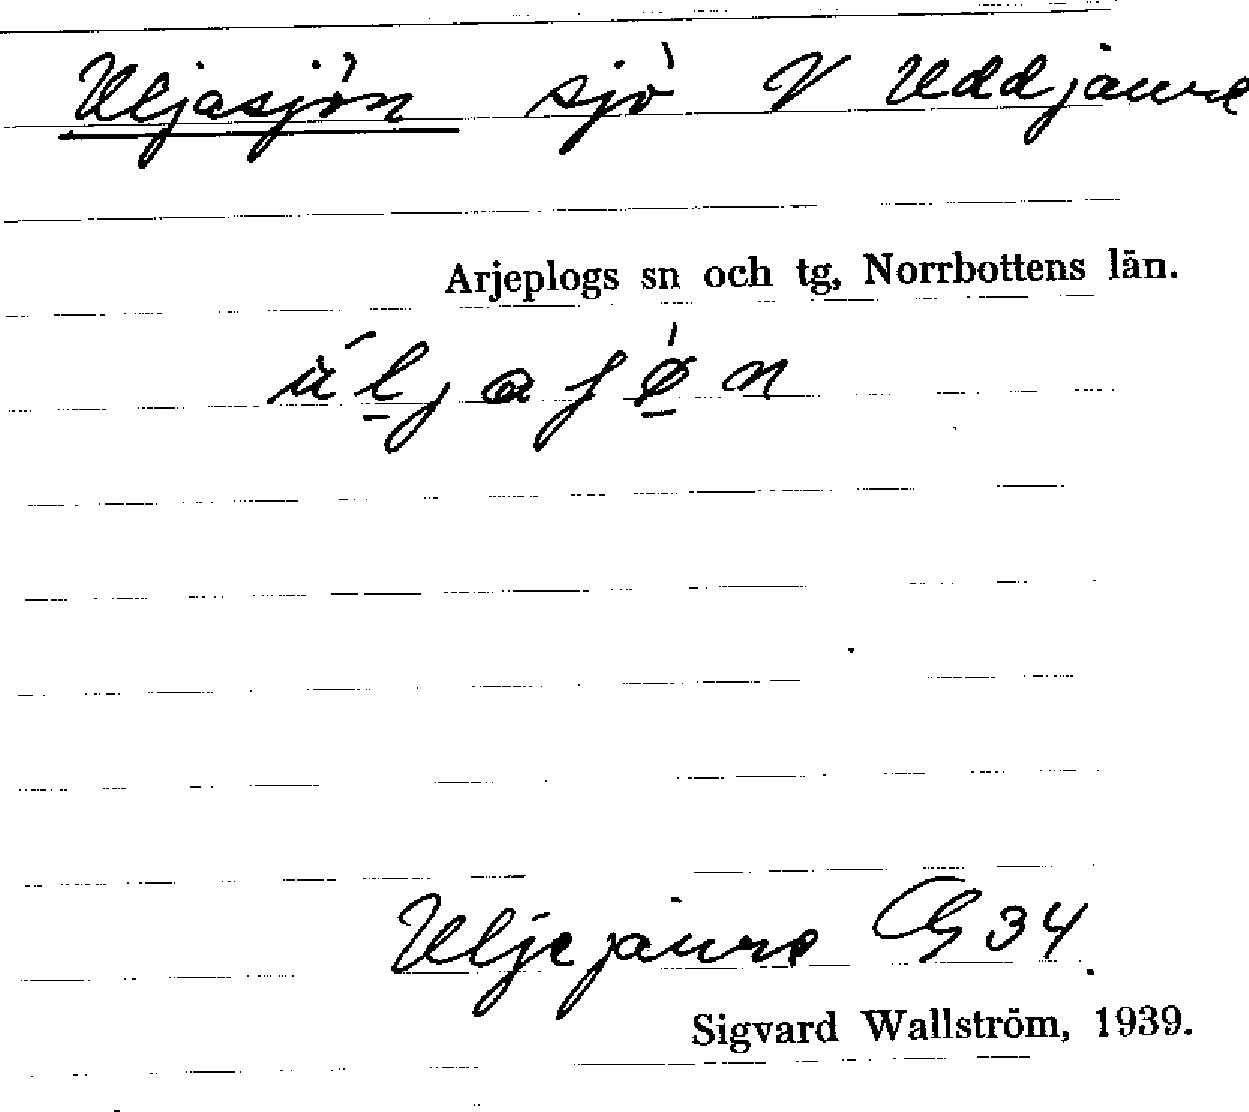 Uljasjön sjö V Uddjaure
Arjeplogs sn och tg, Norrbottens län.
Uljejaure G 34
Sigvard Wallström, 1939.